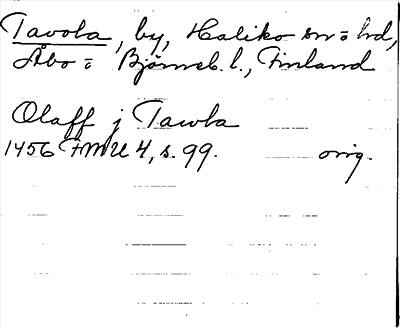 Tavola, by, Haliko sn = hd,
Åbo = Björneb. l., Finland
Olaff j Tawla
1456 FMU 4, s. 99. orig.